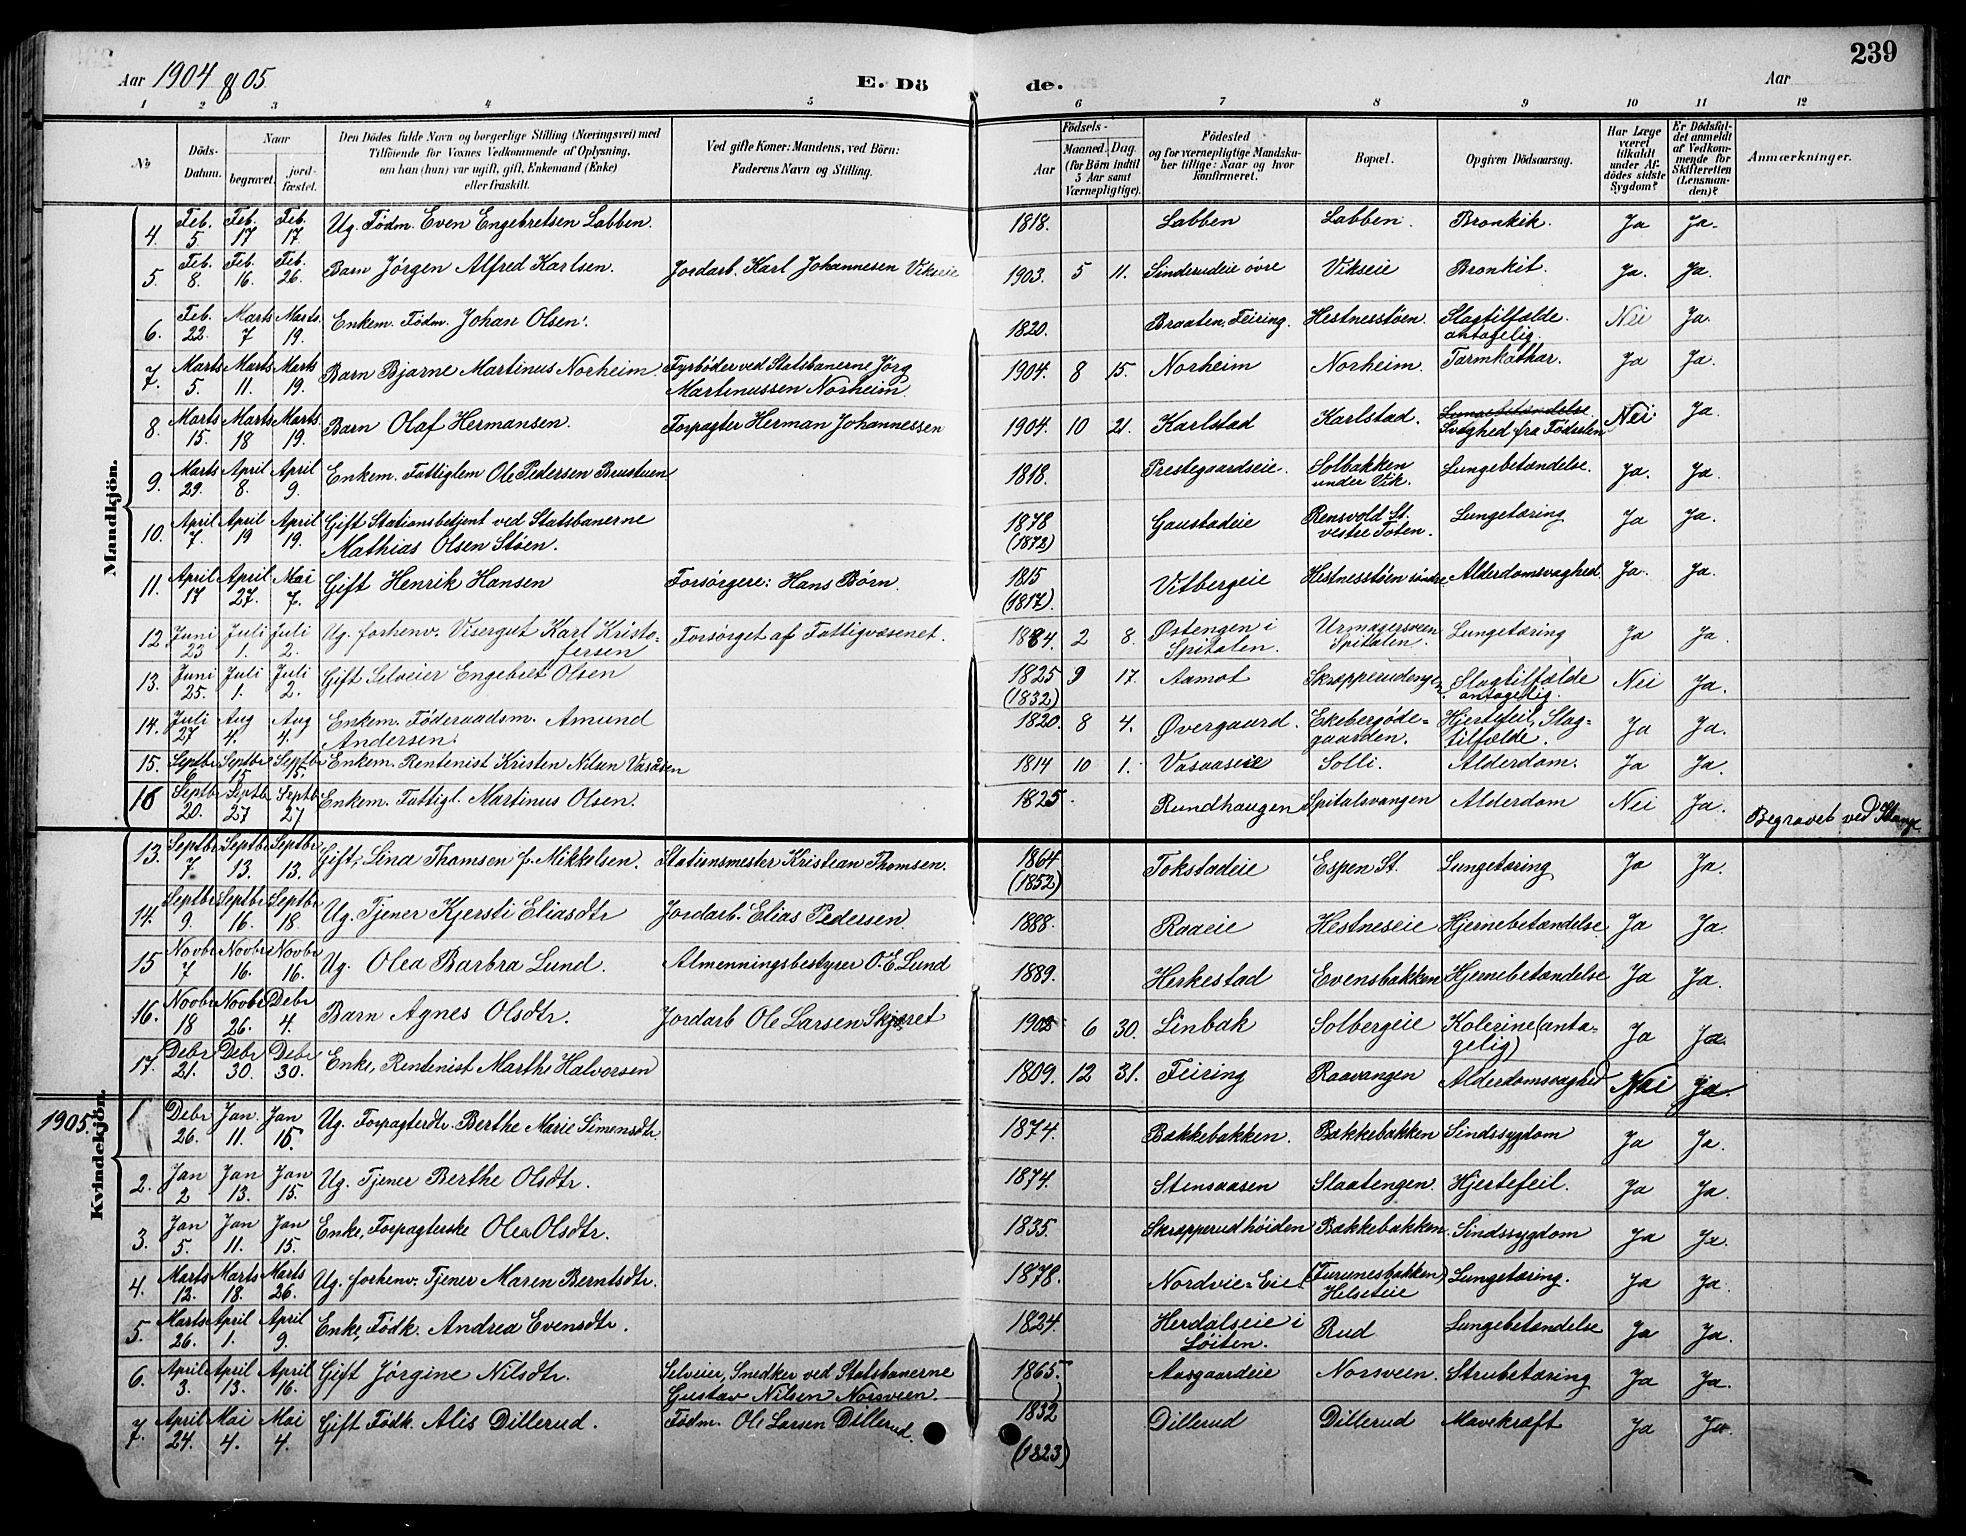 Aar 1904 & 05
E. Dö
de.
Aar
239
1 2 3 4 5 6 7 8 9 10 11 12
No
Döds-Datum.
Naar
begravet.
jordfæstet.
Den Dödes fulde Navn og borgerlige Stilling (Næringsvei) med
Tilföiende for Voxnes Vedkommende af Oplysning,
om han (hun) var ugift, gift, Enkemand (Enke)
eller fraskilt.
Ved gifte Koner: Mandens, ved Börn:
Faderens Navn og Stilling.
Födsels-
Aar
Maaned. Dag
(for Börn indtil
5 Aar samt
Værnepligtige).
Födested
og for værnepligtige Mandskaber tillige: Naar og hvor
konfirmeret.
Bopæl.
Opgiven Dödsaarsag.
Har Læge
været
tilkaldt
under Afdödes sidste
Sygdom?
Er Dödsfaldet anmeldt
af Vedkommende for
Skifteretten
(Lensmanden)?
Anmærkninger.
Mandkjön.
4. Feb. 5 Feb. 17 Feb. 17 Ug. Födm. Even Engebretsen Labben. 1818. Labben Labben. Bronkik. Ja Ja.
5. Feb. 8. Feb. 16. Feb. 26. Barn Jörgen Alfred Karlsen. Jordarb. Karl Johannesen Vikseie 1903. 5 11. Sinderudeie övre Vikseie Bronkit. Ja. Ja.
6. Feb. 22. Marts 7 Marts. 19. Enkem. Födm. Johan Olsen. 1820. Braaten, Feiring. Hestnesstöen. Slagtilfælde. antagelig. Nei Ja.
7. Marts 5. Marts 11. Marts 19. Barn Bjarne Martinus Norheim. Fyrböder ved Statsbanerne Jörg
Martinussen Norheim. 1904. 8 15. Norheim Norheim. Tarmkathar. Ja Ja.
8. Marts 15. Marts 18 Marts. 19. Barn Olaf Hermansen. Forpagter Herman Johannessen 1904. 10 21. Karlstad Karlstad. Lungebetændelse.
Svaghed fra Födselen Nei Ja.
9. Marts 29. April 8. April 9. Enkem. Fattiglem Ole Pedersen Brustuen 1818. Prestegaardseie. Solbakken under Vik. Lungebetændelse. Ja. Ja.
10. April 7. April 19 April 19. Gift Stationsbetjent ved Statsbanerne
Mathias Olsen Stöen. 1878 (1872) Gaustadeie Rensvold St. vestre Toten. Lungetæring Ja Ja.
11. April 17 April 27. Mai 7. Gift Henrik Hansen Forsörgere: Hans Börn. 1815 (1817). Vitbergeie Hestnesstöen söndre Alderdomsvaghed. Ja. Ja.
12. Juni 23 Juli 1. Juli 2. Ug. forhenv. Visergut Karl Kristofersen Forsörget af Fattigvæsenet. 1884. 2 8. Östengen i Spitalen. Urmagersveen Spitalen. Lungetæring Ja Ja.
13. Juni 25. Juli 1. Juli 2. Gift Selveier Engebret Olsen 1825 (1832) 9 17. Aamot Skræpperudengen Slagtilfælde antagelig. Nei Ja.
14. Juli 27 Aug 4. Aug 4. Enkem. Föderaadsm. Amund
Andersen. 1820. 8 4. Övergaard. Ekebergödegaarden. Hjertefeil, Slagtilfælde. Ja Ja.
15. Septbr 6 Septbr 15 Septbr 15. Enkem. Rentenist Kristen Nilsen Vasaasen 1814 10 1. Vasaaseie Solli. Alderdom. Ja Ja.
16 Septbr 20. Septbr 27 Septbr 27 Enkem. Fattigl. Martinus Olsen. 1825. Rundhaugen Spitalsvangen Alderdom Nei Ja. Begravet ved Stange
Kvindekjön.
13. Septbr 7 Septbr 13. Septbr 13. Gift, Lina Thomsen f. Mikkelsen. Stationsmester Kristian Thomsen. 1864 (1852) Tokstadeie Espen St. Lungetæring Ja Ja.
14. Septbr 9. Septbr 16. Septbr 18. Ug. Tjener Kjersti Eliasdtr Jordarb. Elias Pedersen. 1888. Raaeie Hestneseie Hjernebetændelse. Ja Ja.
15 Novbr 7 Novbr 16. Novbr 16. Ug. Olea Barbra Lund. Almenningsbestyrer O. E. Lund 1889. Herkestad Evensbakken Hjernebetændelse Ja Ja.
16. Novbr 18 Novbr 26. Debr 4. Barn Agnes Olsdtr. Jordarb Ole Larsen Skjæret 1903 6 30. Linbak Solbergeie Kolerine (antagelig) Ja Ja.
17. Debr 21. Debr 30. Debr 30. Enke, Rentenist Marthe Halvorsen 1809. 12 31. Feiring Raavangen Alderdomsvaghed Nei Ja.
1905.
1 Debr 26. Jan 11. Jan 15. Ug. Forpagterdtr. Berthe Marie Simensdtr. 1874. Bakkebakken. Bakkebakken Sindssygdom Ja Ja.
2. Jan 2 Jan 13. Jan 15. Ug. Tjener Berthe Olsdtr. 1874. Stensaasen Slaatengen. Hjertefeil. Ja Ja.
3. Jan 5. Jan 11. Jan 15. Enke, Forpagterske Olea Olsdtr. 1835. Skræpperudhöiden Bakkebakken. Sindssygdom Ja Ja.
4. Marts 12. Marts 18. Marts 26. Ug. forhenv. Tjener Maren Berntsdtr. 1878. Nordvie-Eie. (Furunesbakken) Helseteie Lungetæring. Ja Ja.
5. Marts 26. April 1. April 9. Enke, Födk. Andrea Evensdtr. 1824. Herdalseie i Löiten. Rud Lungebetændelse Ja Ja.
6. April 3. April 13. April 16. Gift Jörgine Nilsdtr. Selveier, Snedker ved Statsbanerne
Gustav Nilsen Norsveen. 1865. ( ) Aasgaardeie Norsveen. Strubetæring Ja Ja.
7. April 24. Mai 4. Mai 4. Gift Födk. Alis Dillerud. Födm. Ole Larsen Dillerud. 1832 (1823) Dillerud Dillerud Mavekræft Ja Ja.